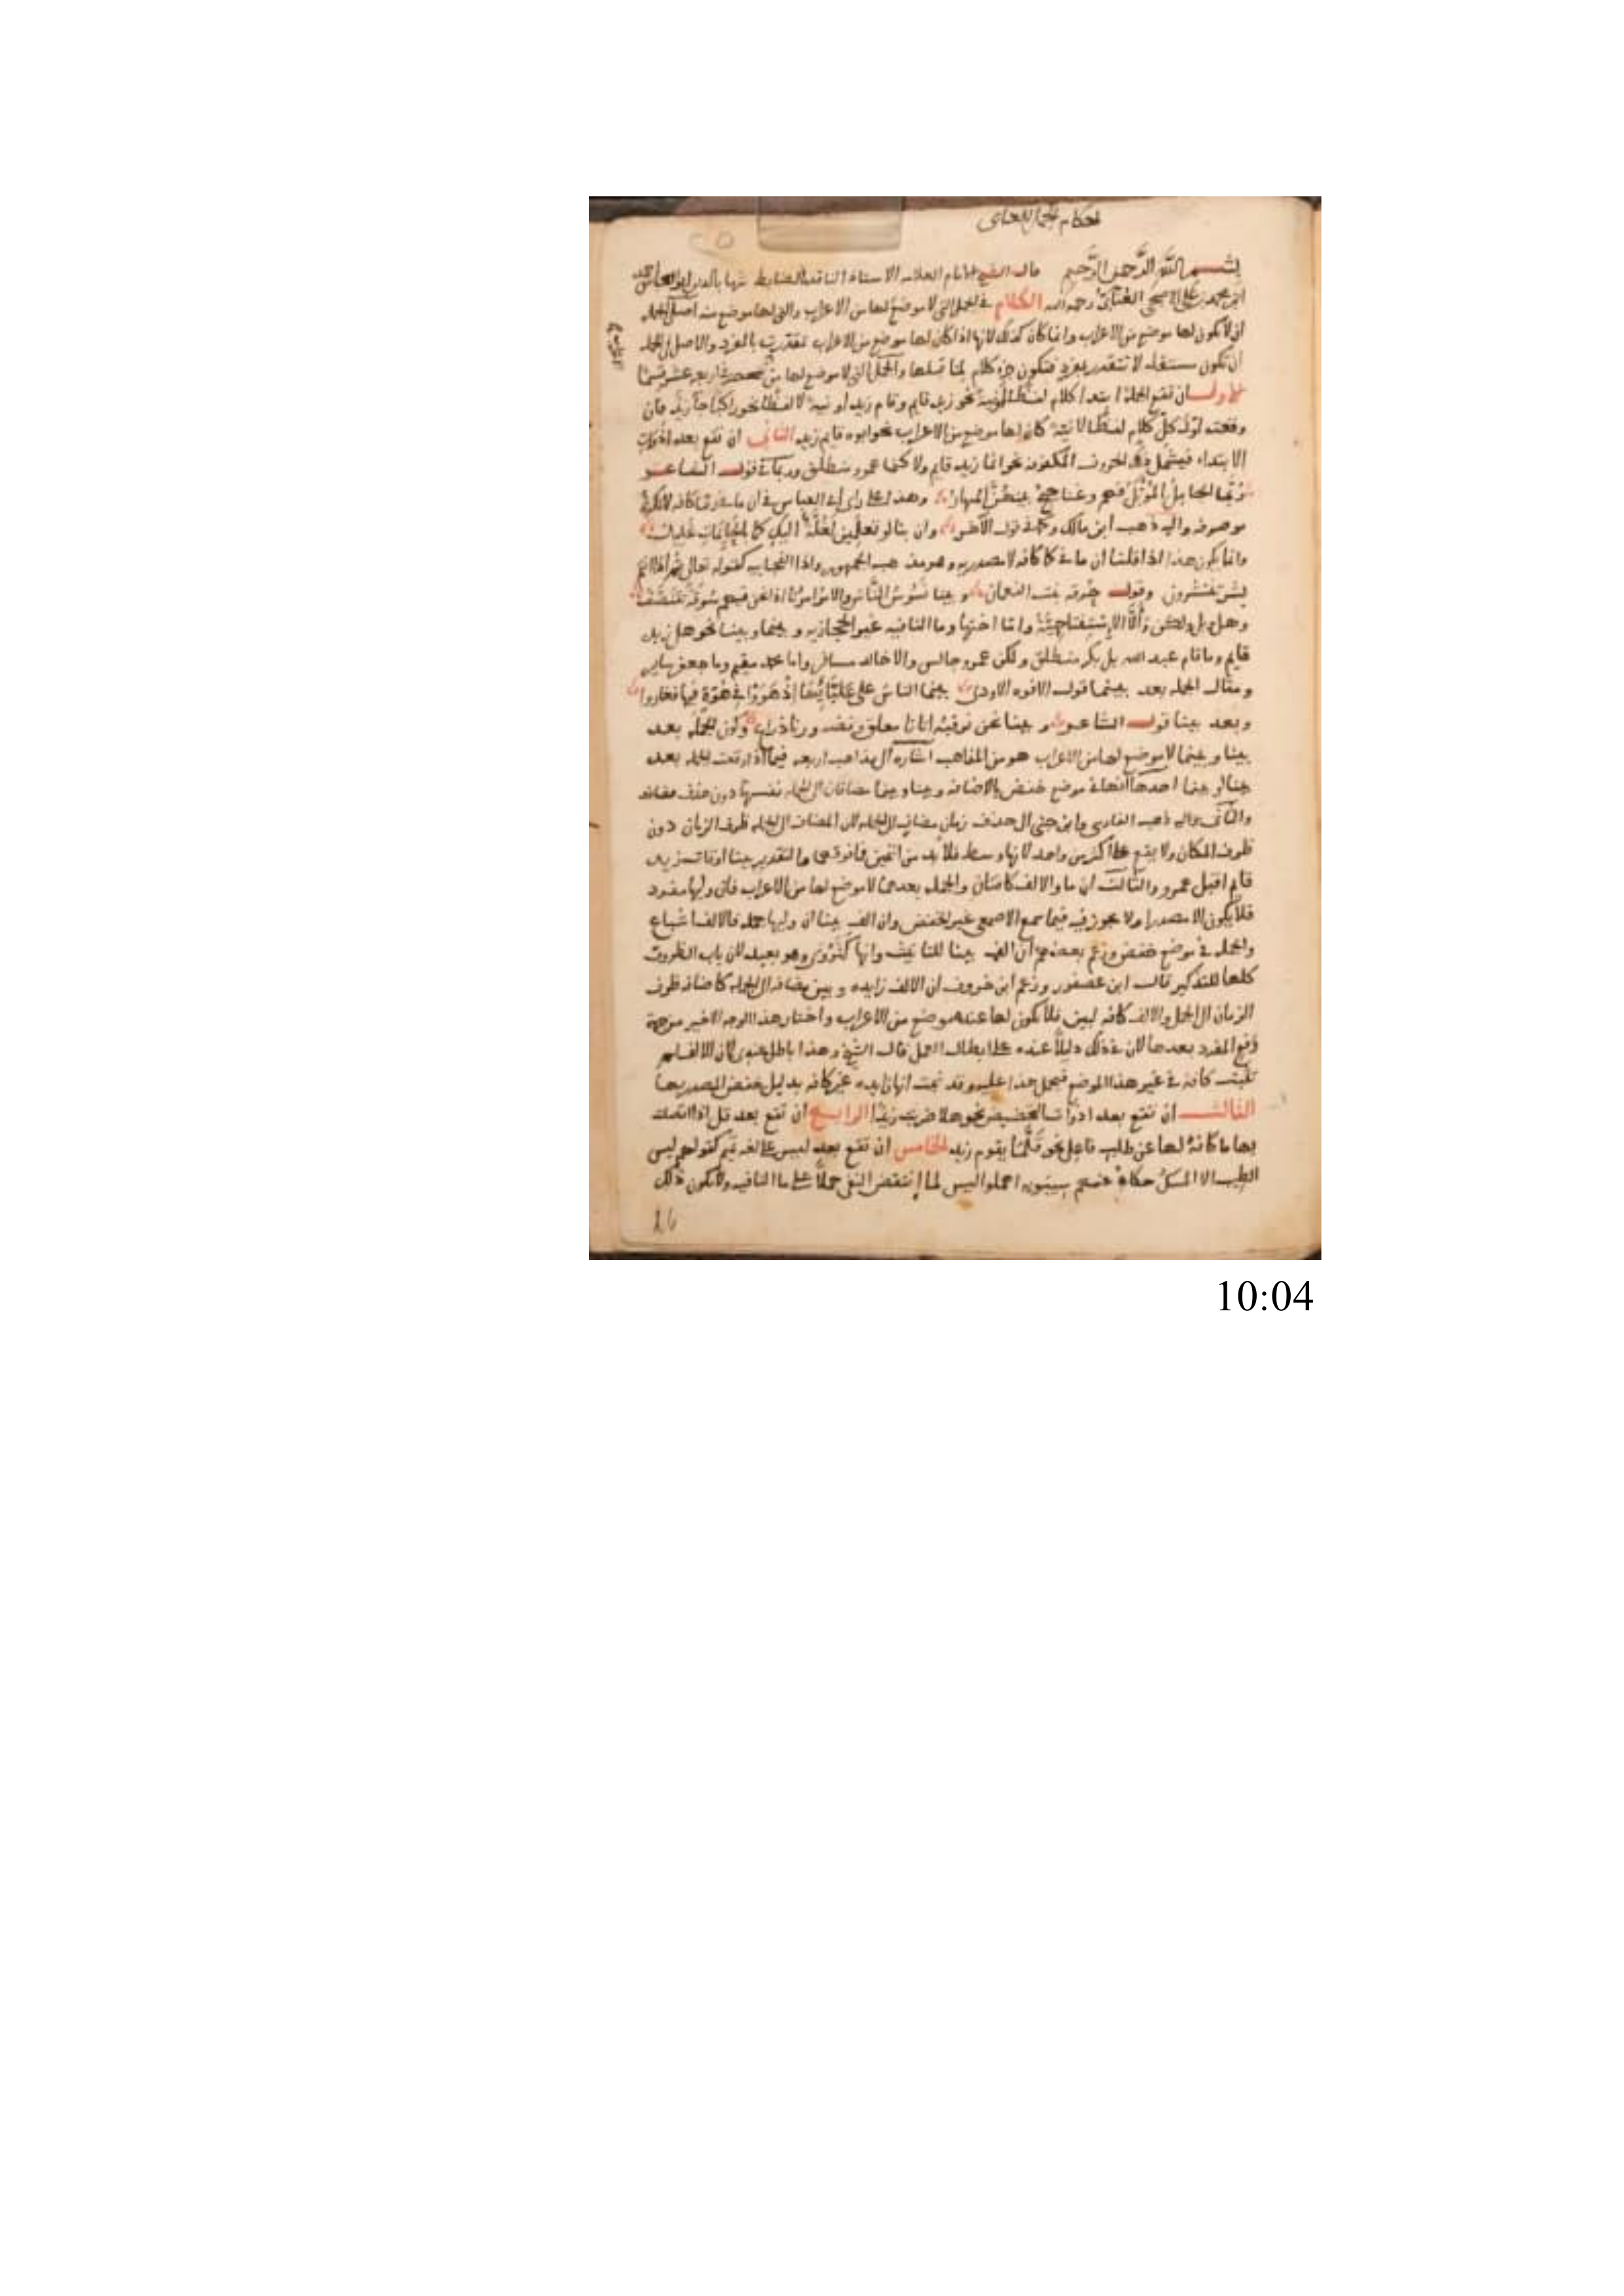 احكام الجمل للعنابى
بسم الله الرحمن الرحيم قال الشيخ الامام العلامه الاستاذ الناقد الضابط شهاب الدين ابو العباس احمد
ابن محمد بن على الاصبحى العنابى رحمه الله الكلام فى الجمل التى لا موضع لها من الاعراب والتى لها موضع منه اصل الجمله
ان لا يكون لها موضع من الاعراب وانما كان كذلك لانها اذا كان لها موضع من الاعراب تقدرت بالمفرد والاصل فى الجمله
ان تكون مستقله لا تتقدر بمفرد فتكون جزء كلام لما قبلها والجمل التى لا موضع لها من منحصر فى اربعه عشر قسما
الاول ان تقع الجملة ابتداء كلام لفظا ونية نحو زيد قايم وقام زيد او نية لا لفظا نحو راكبا جا زيد فان
وقعت اول كل كلام لفظا لا نية كان لها موضع من الاعراب نحو ابوه قايم زيد الثانى ان تقع بعد ادوات
الابتداء فيشمل ذلك الحروف المكفوفه نحو انما زيد قايم ولا كنما عمرو منطلق وربما فى قول الشاعر
ربما الجامل المؤبل فيهم وعناجيج بينهن المهار وهذا على راى ابى العباس فى ان ما فى ربما كافه لا نكرة
موصوفه واليه ذهب ابن مالك وكما فى قول الاخر اليك كما
وانما يكون هذا اذا قلنا ان ما فى كما كافه لا مصدريه وهو مذهب الجمهور واذا الفجاييه كقوله تعالى ثم اذا انتم
بشر تنتشرون وقول حرقه بنت النعمان وبينا نسوس الناس والامر امرنا اذا نحن فيهم سوقة نتنصف
وهل وبل ولكن وألا الاستفتاحية واما اختها وما النافيه غير الحجازيه وبينما وبينا نحو هل زيد
قايم وما قام عبد الله بل بكر منطلق ولكن عمرو جالس والا خالد مسافر واما محمد مقيم وما جعفر ساير
ومثال الجمله بعد بينما قول الافوه الاودى بينما الناس على عليائها اذ هووا فى هوة فيها فغاروا
وبعد بينا قول الشاعر وبينا نحن نرقبه اتانا معلق وفضه وزناد راع وكون الجمله بعد
بينا وبينما لا موضع لها من الاعراب هو من المذاهب اشاره الى مذاهب اربعه فيما اذا وقعت الجمله بعد
بينا او بينما احدها انها فى موضع خفض بالاضافه وبينا وبينما مضافان الى الجمله نفسها دون حذف مضاف
والثانى واليه ذهب الفارسى وابن جنى الى حذف زمان مضاف الى الجمله لان المضاف الى الجمله ظروف الزمان دون
ظروف المكان ولا يقع على اكثر من واحد لانها وسط فلا بد من اثنين فما فوقهما والتقدير بينا اوقات زيد
قايم اقبل عمرو والثالث ان ما والالف كافتان والجمله بعدهما لا موضع لها من الاعراب فان وليها مفرد
فلا يكون الا مصدرا ولا يجوز فيه فيما سمع الاصمعى غير الخفض وان الف بينا ان وليها جمله فالالف اشباع
والجمله فى موضع خفض وزعم بعضهم ان الف بينا للتانيث وانها وهو بعيد لان باب الظروف
كلها للتذكير قال ابن عصفور وزعم ابن خروف ان الالف زايده وبين مضافه الى الجمله كاضافه ظروف
الزمان الى الجمل والالف كافه لبين فلا يكون لها عنده موضع من الاعراب واختار هذا الوجه الاخير من جهة
رفع المفرد بعدها لان فى ذلك دليلا عنده على ابطال العمل قال الشيخ وهذا باطل عندى لان الالف لم
تثبت كافه فى غير هذا الموضع فيحمل هذا عليه وقد ثبت انها زايده غير كافه بدليل خفض المصدر بها
الثالث ان تقع بعد ادوات التحضيض نحو هلا ضربت زيدا الرابع ان تقع بعد قل اذا اتصلت
بها ما كافة لها عن طلب فاعل نحو قلما يقوم زيد الخامس ان تقع بعد ليس على لغه تميم كقولهم ليس
الطيب الا المسك حكاه عنهم سيبويه اهملوا ليس لما انتقض النفى حملا على ما النافيه ولا يكون ذلك
10:04